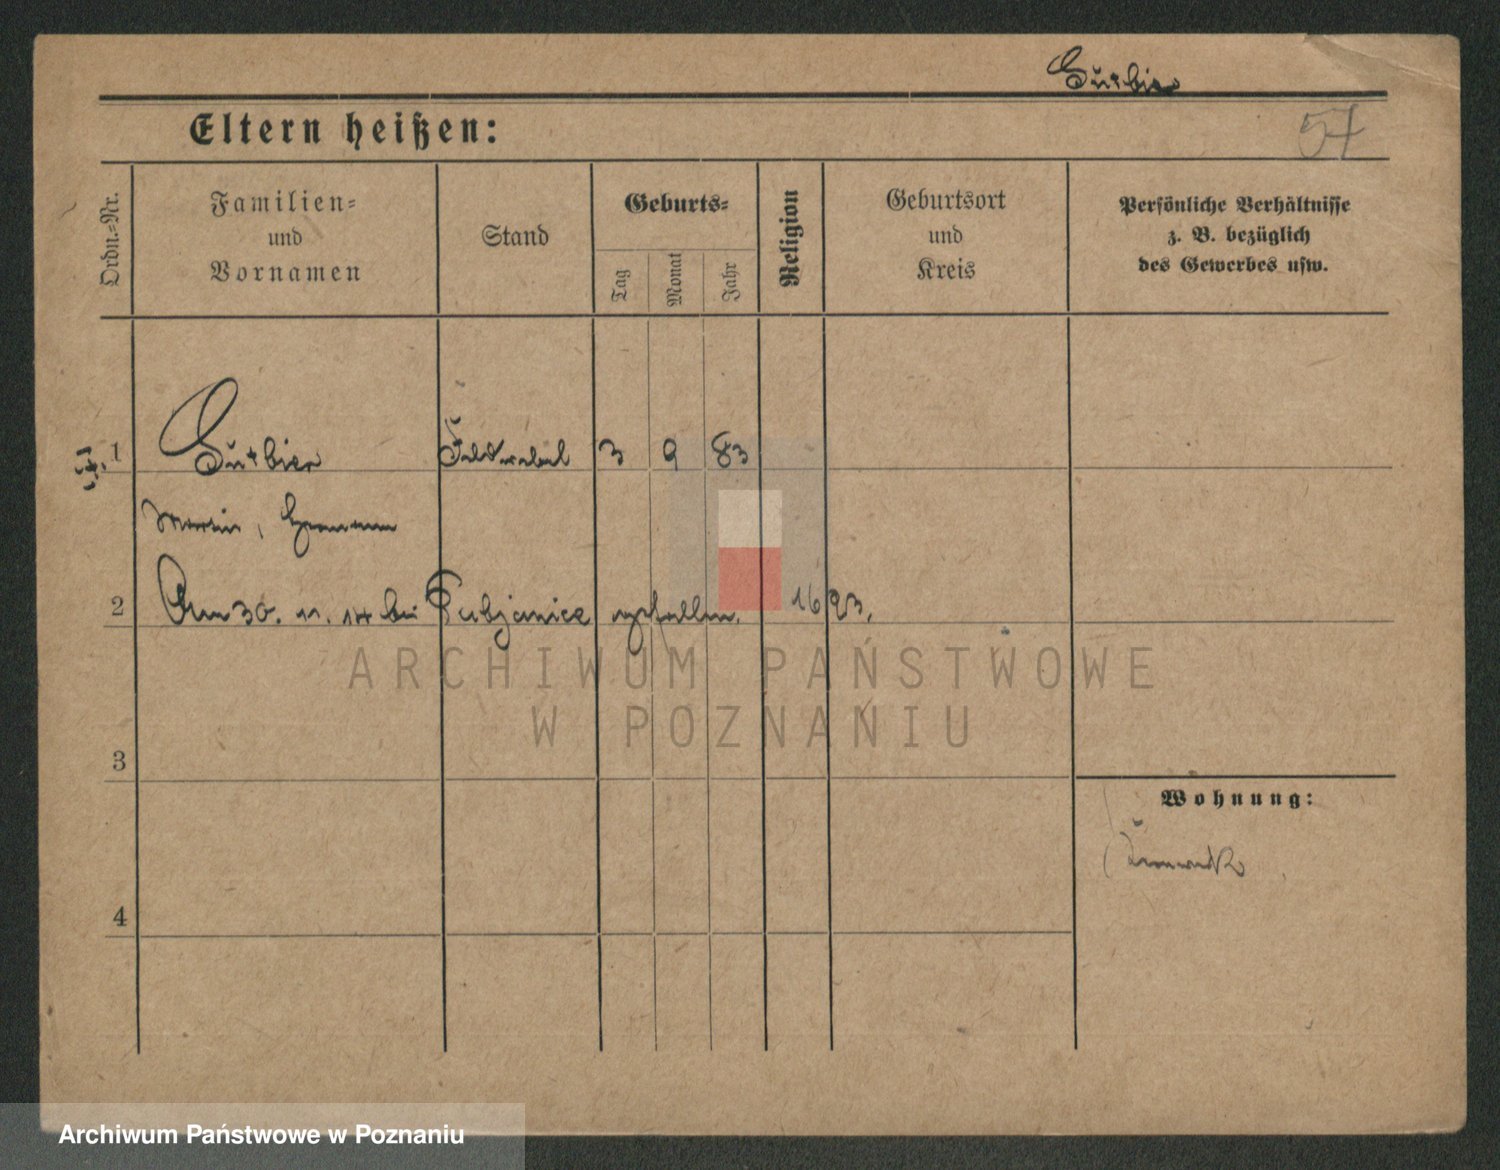 Gutbier
54
Eltern heißen:
Ordn.=Nr.
Familien=
und
Vornamen
Stand
Geburts=
Tag
Monat
Jahr
Religion
Geburtsort
und
Kreis
Persönliche Verhältnisse
z. B. bezüglich
des Gewerbes usw.
1 Gutbier Feldwebel 3 9 83
Martin, Hermann
2 Am 30. 11. 14 bei Pabjanice gefallen. 1693.
ARCHIWUM PAŃSTWOWE
W POZNANIU
3
Wohnung:
4
Archiwum Państwowe w Poznaniu